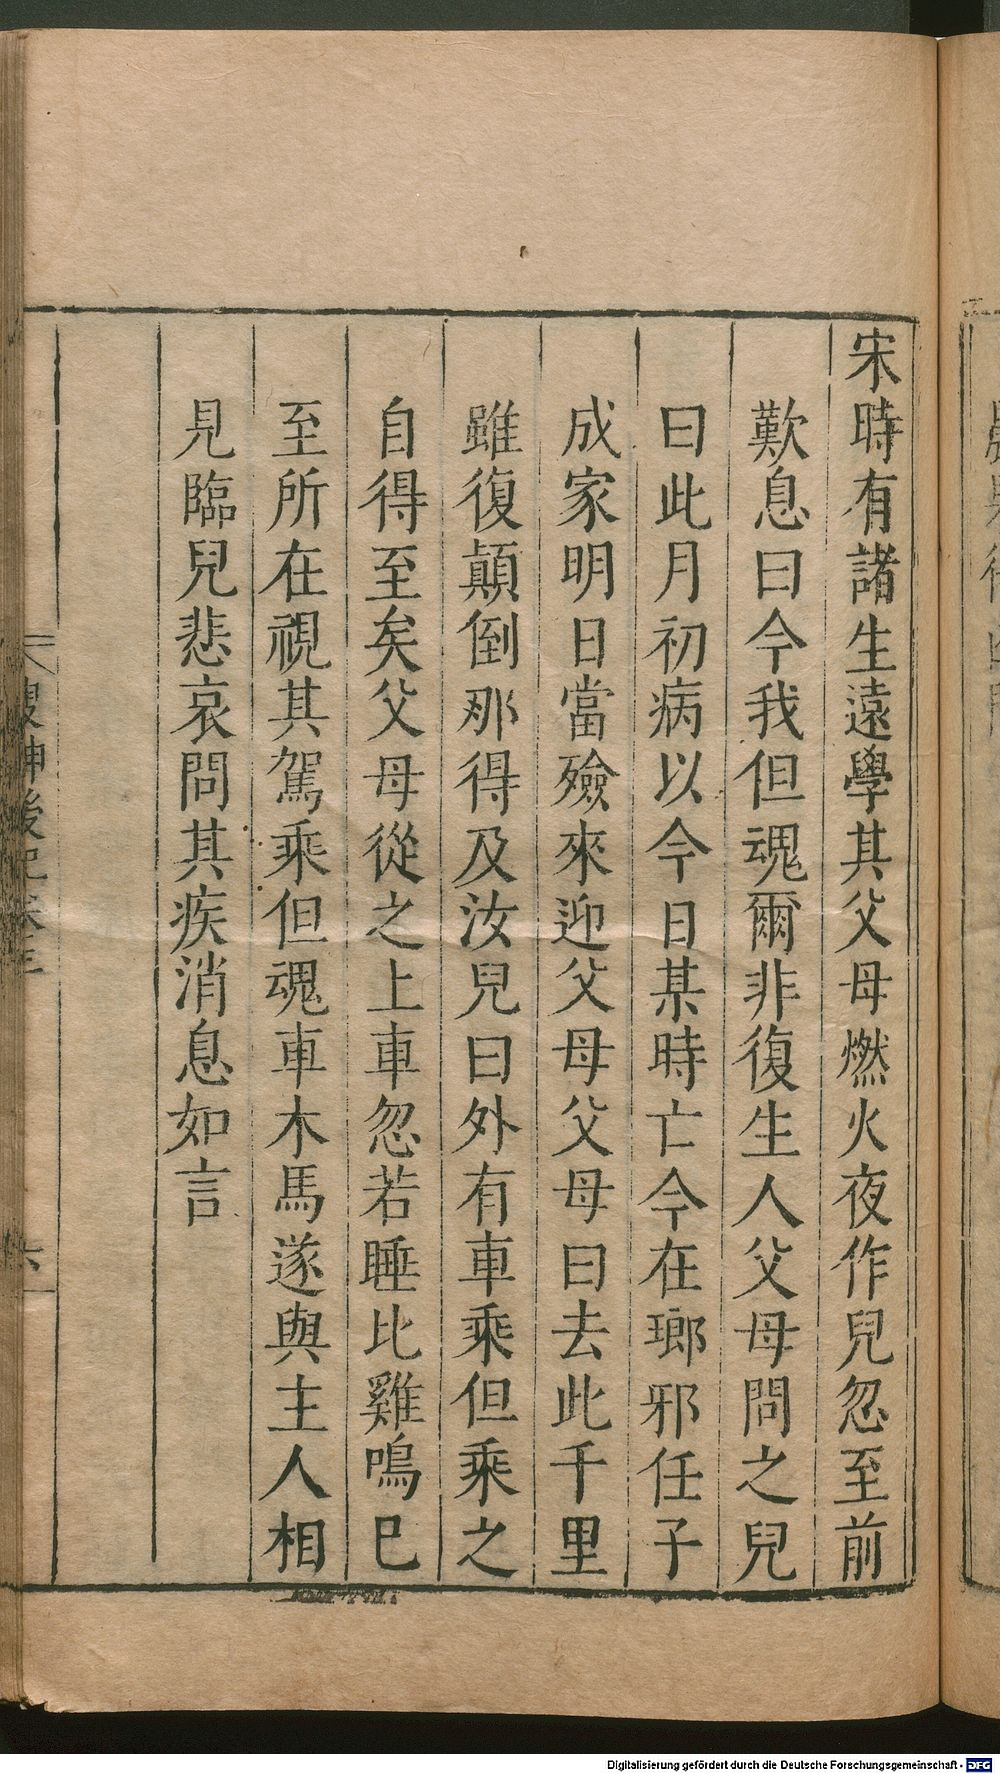 宋時有諸生遠學其父母燃火夜作兒忽至前
歎息曰今我但魂爾非復生人父母問之兒
曰此月初病以今日某時亡今在瑯邪任子
成家明日當殮來迎父母父母曰去此千里
雖復顛倒那得及汝兒曰外有車乘但乘之
自得至矣父母從之上車忽若睡比雞鳴巳
至所在視其駕乘但魂車木馬遂與主人相
見臨兒悲哀問其疾消息如言
搜神後記卷三
六
Digitalisierung gefördert durch die Deutsche Forschungsgemeinschaft - DFG